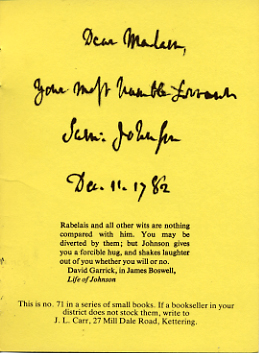 Dear Madam,
Your most humble Servant
Sam: Johnson
Dec. 11. 1782
Rabelais and all other wits are nothing
compared with him. You may be
diverted by them; but Johnson gives
you a forcible hug, and shakes laughter
out of you whether you will or no.
David Garrick, in James Boswell,
Life of Johnson
This is no. 71 in a series of small books. If a bookseller in your
district does not stock them, write to
J. L. Carr, 27 Mill Dale Road, Kettering.